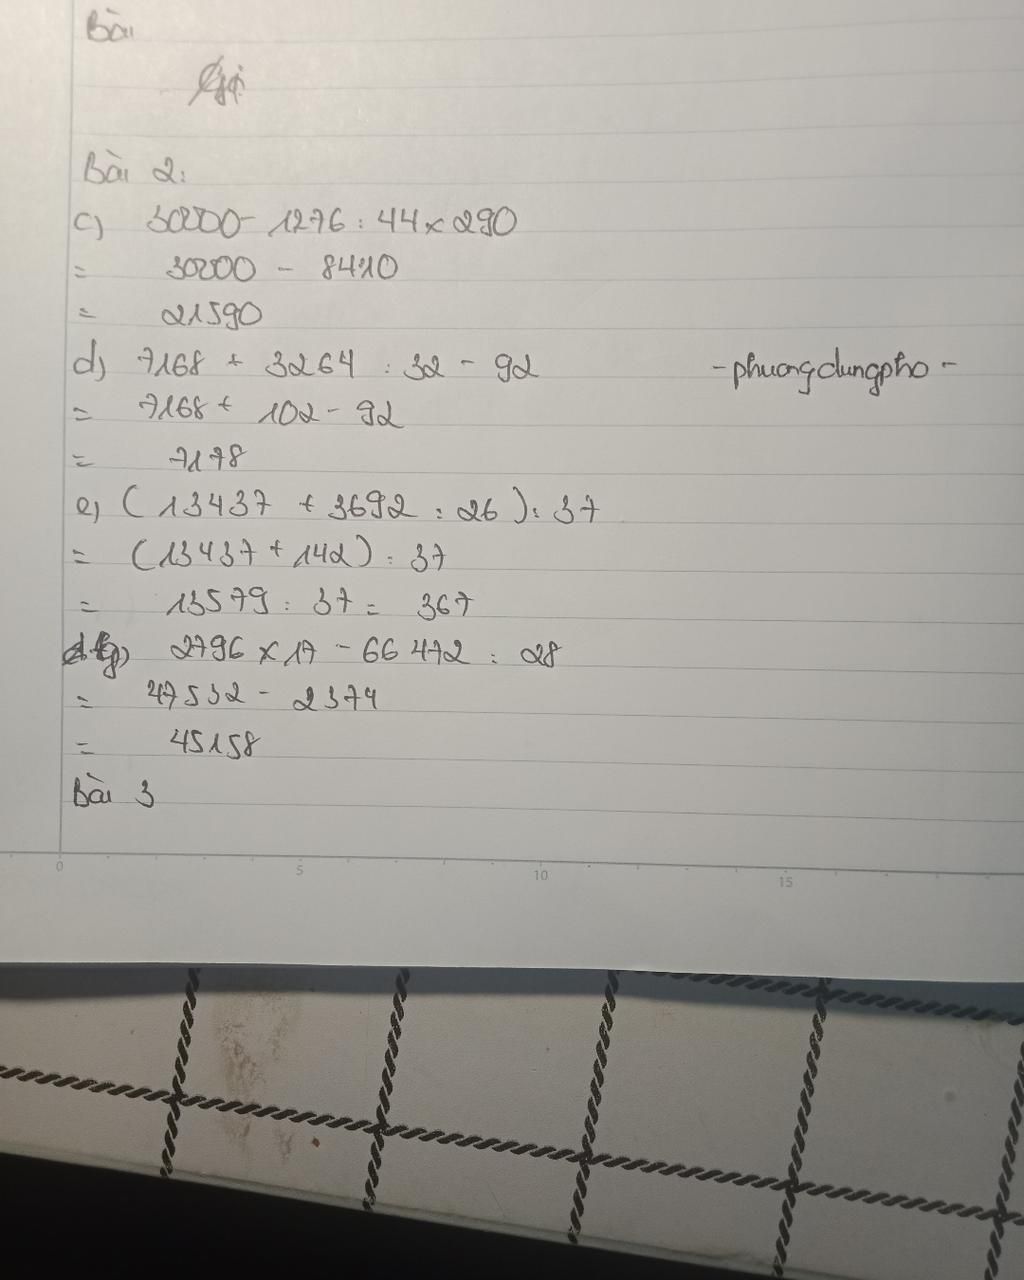 Bài
Bài 2:
c) 30000 - 1276 : 44 × 290
= 30000 - 8410
= 21590
d) 7168 + 3264 : 32 - 92
-phuongdungpho-
= 7168 + 102 - 92
= 7178
e) (13437 + 3692 : 26) : 37
= (13437 + 142) : 37
= 13579 : 37 = 367
g) 2796 × 17 - 66 472 : 28
= 47532 - 2374
= 45158
Bài 3
0 5 10 15